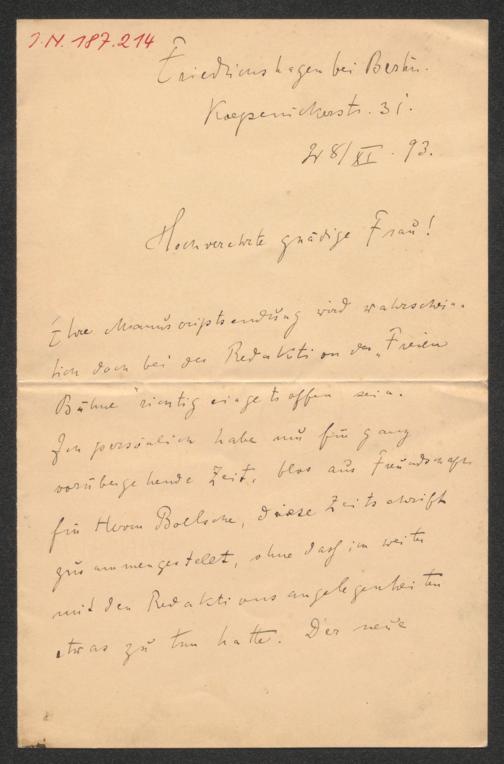 I.N. 187.214
Friedrichshagen bei Berlin.
Koepenickerstr. 31.
28/XI. 93.
Hochverehrte gnädige Frau!
Ihre Manuscriptsendung wird wahrschein-
lich doch bei der Redaktion der „Freien
Bühne" richtig eingetroffen sein.
Ich persönlich habe nur für ganz
vorübergehende Zeit, blos aus Freundschaft
für Herrn Boelsche, diese Zeitschrift
zusammengestellt, ohne daß ich weiter
mit den Redaktionsangelegenheiten
etwas zu tun hatte. Der neue